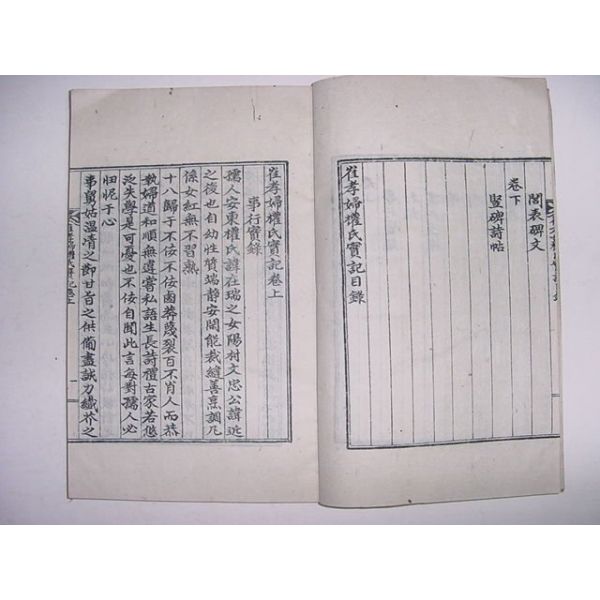 閭表碑文
卷下
竪碑詩帖
崔孝婦權氏實記目錄
崔孝婦權氏實記卷上
事行實錄
孺人安東權氏諱在瑞之女陽村文忠公諱近
之後也自幼性質端靜安閒能裁縫善烹調凡
係女紅無不習熟
十八歸于不佞不佞鹵莽蔑裂百不肖人而恭
執婦道和順無違嘗私語生長詩禮古家若愆
泛失學是可憂也不佞自聞此言每對孺人必
忸怩于心
事舅姑溫凊之節甘旨之供備盡誠力纖芥之